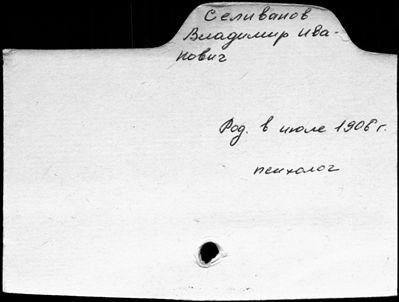 Селиванов
Владимир Ива-
нович
Род. в июле 1906 г.
психолог